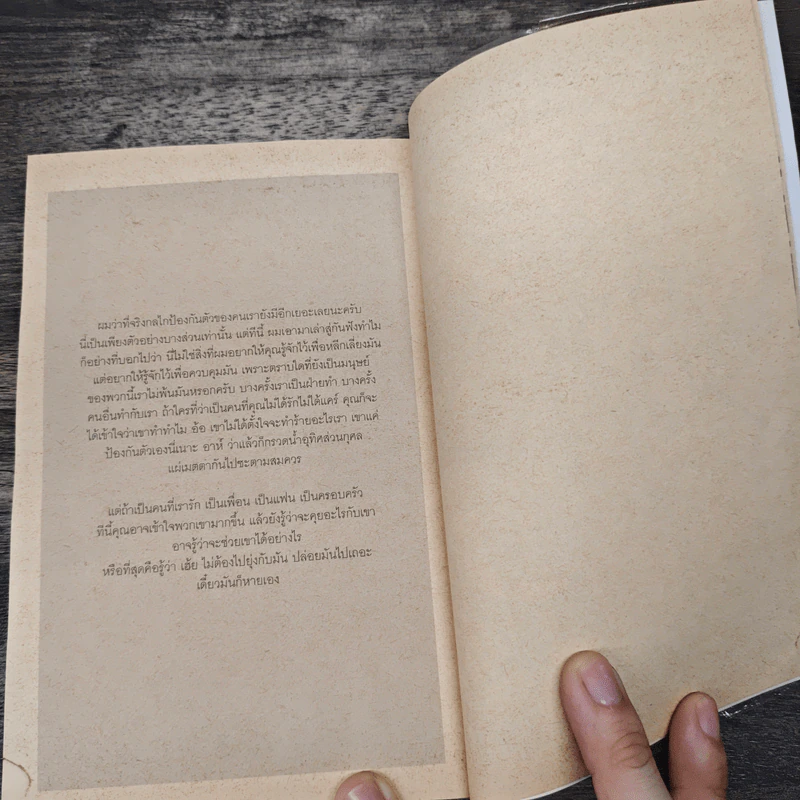 ผมว่าที่จริงกลไกป้องกันตัวของคนเรายังมีอีกเยอะเลยนะครับ
นี่เป็นเพียงตัวอย่างบางส่วนเท่านั้น แต่ทีนี้ ผมเอามาเล่าสู่กันฟังทำไม
ก็อย่างที่บอกไปว่า นี่ไม่ใช่สิ่งที่ผมอยากให้คุณรู้จักไว้เพื่อหลีกเลี่ยงมัน
แต่อยากให้รู้จักไว้เพื่อควบคุมมัน เพราะตราบใดที่ยังเป็นมนุษย์
ของพวกนี้เราไม่พ้นมันหรอกครับ บางครั้งเราเป็นฝ่ายทำ บางครั้ง
คนอื่นทำกับเรา ถ้าใครที่ว่าเป็นคนที่คุณไม่ได้รักไม่ได้แคร์ คุณก็จะ
ได้เข้าใจว่าเขาทำทำไม อ้อ เขาไม่ได้ตั้งใจจะทำร้ายอะไรเรา เขาแค่
ป้องกันตัวเองนี่เนาะ อาห์ ว่าแล้วก็กรวดน้ำอุทิศส่วนกุศล
แผ่เมตตากันไปซะตามสมควร
แต่ถ้าเป็นคนที่เรารัก เป็นเพื่อน เป็นแฟน เป็นครอบครัว
ทีนี้คุณอาจเข้าใจพวกเขามากขึ้น แล้วยังรู้ว่าจะคุยอะไรกับเขา
อาจรู้ว่าจะช่วยเขาได้อย่างไร
หรือที่สุดคือรู้ว่า เฮ้ย ไม่ต้องไปยุ่งกับมัน ปล่อยมันไปเถอะ
เดี๋ยวมันก็หายเอง